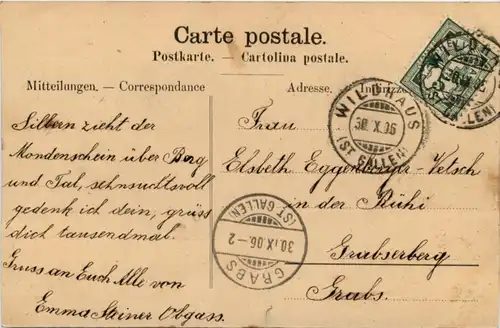 Carte postale.
Postkarte. — Cartolina postale.
Mitteilungen. — Correspondance
Adresse.
Silbern zieht der
Mondenschein über Berg
und Tal, sehnsuchtsvoll
gedenk ich dein, grüss
dich tausendmal.
Gruss an Euch Alle von
Emma Steiner Obgass.
Frau
Elsbeth Eggenberger-Vetsch
in der Rühi
Grabserberg
Grabs.
WILDHAUS
30 X 06
(ST. GALLEN)
(ST. GALLEN)
30.X.06.-2
GRABS